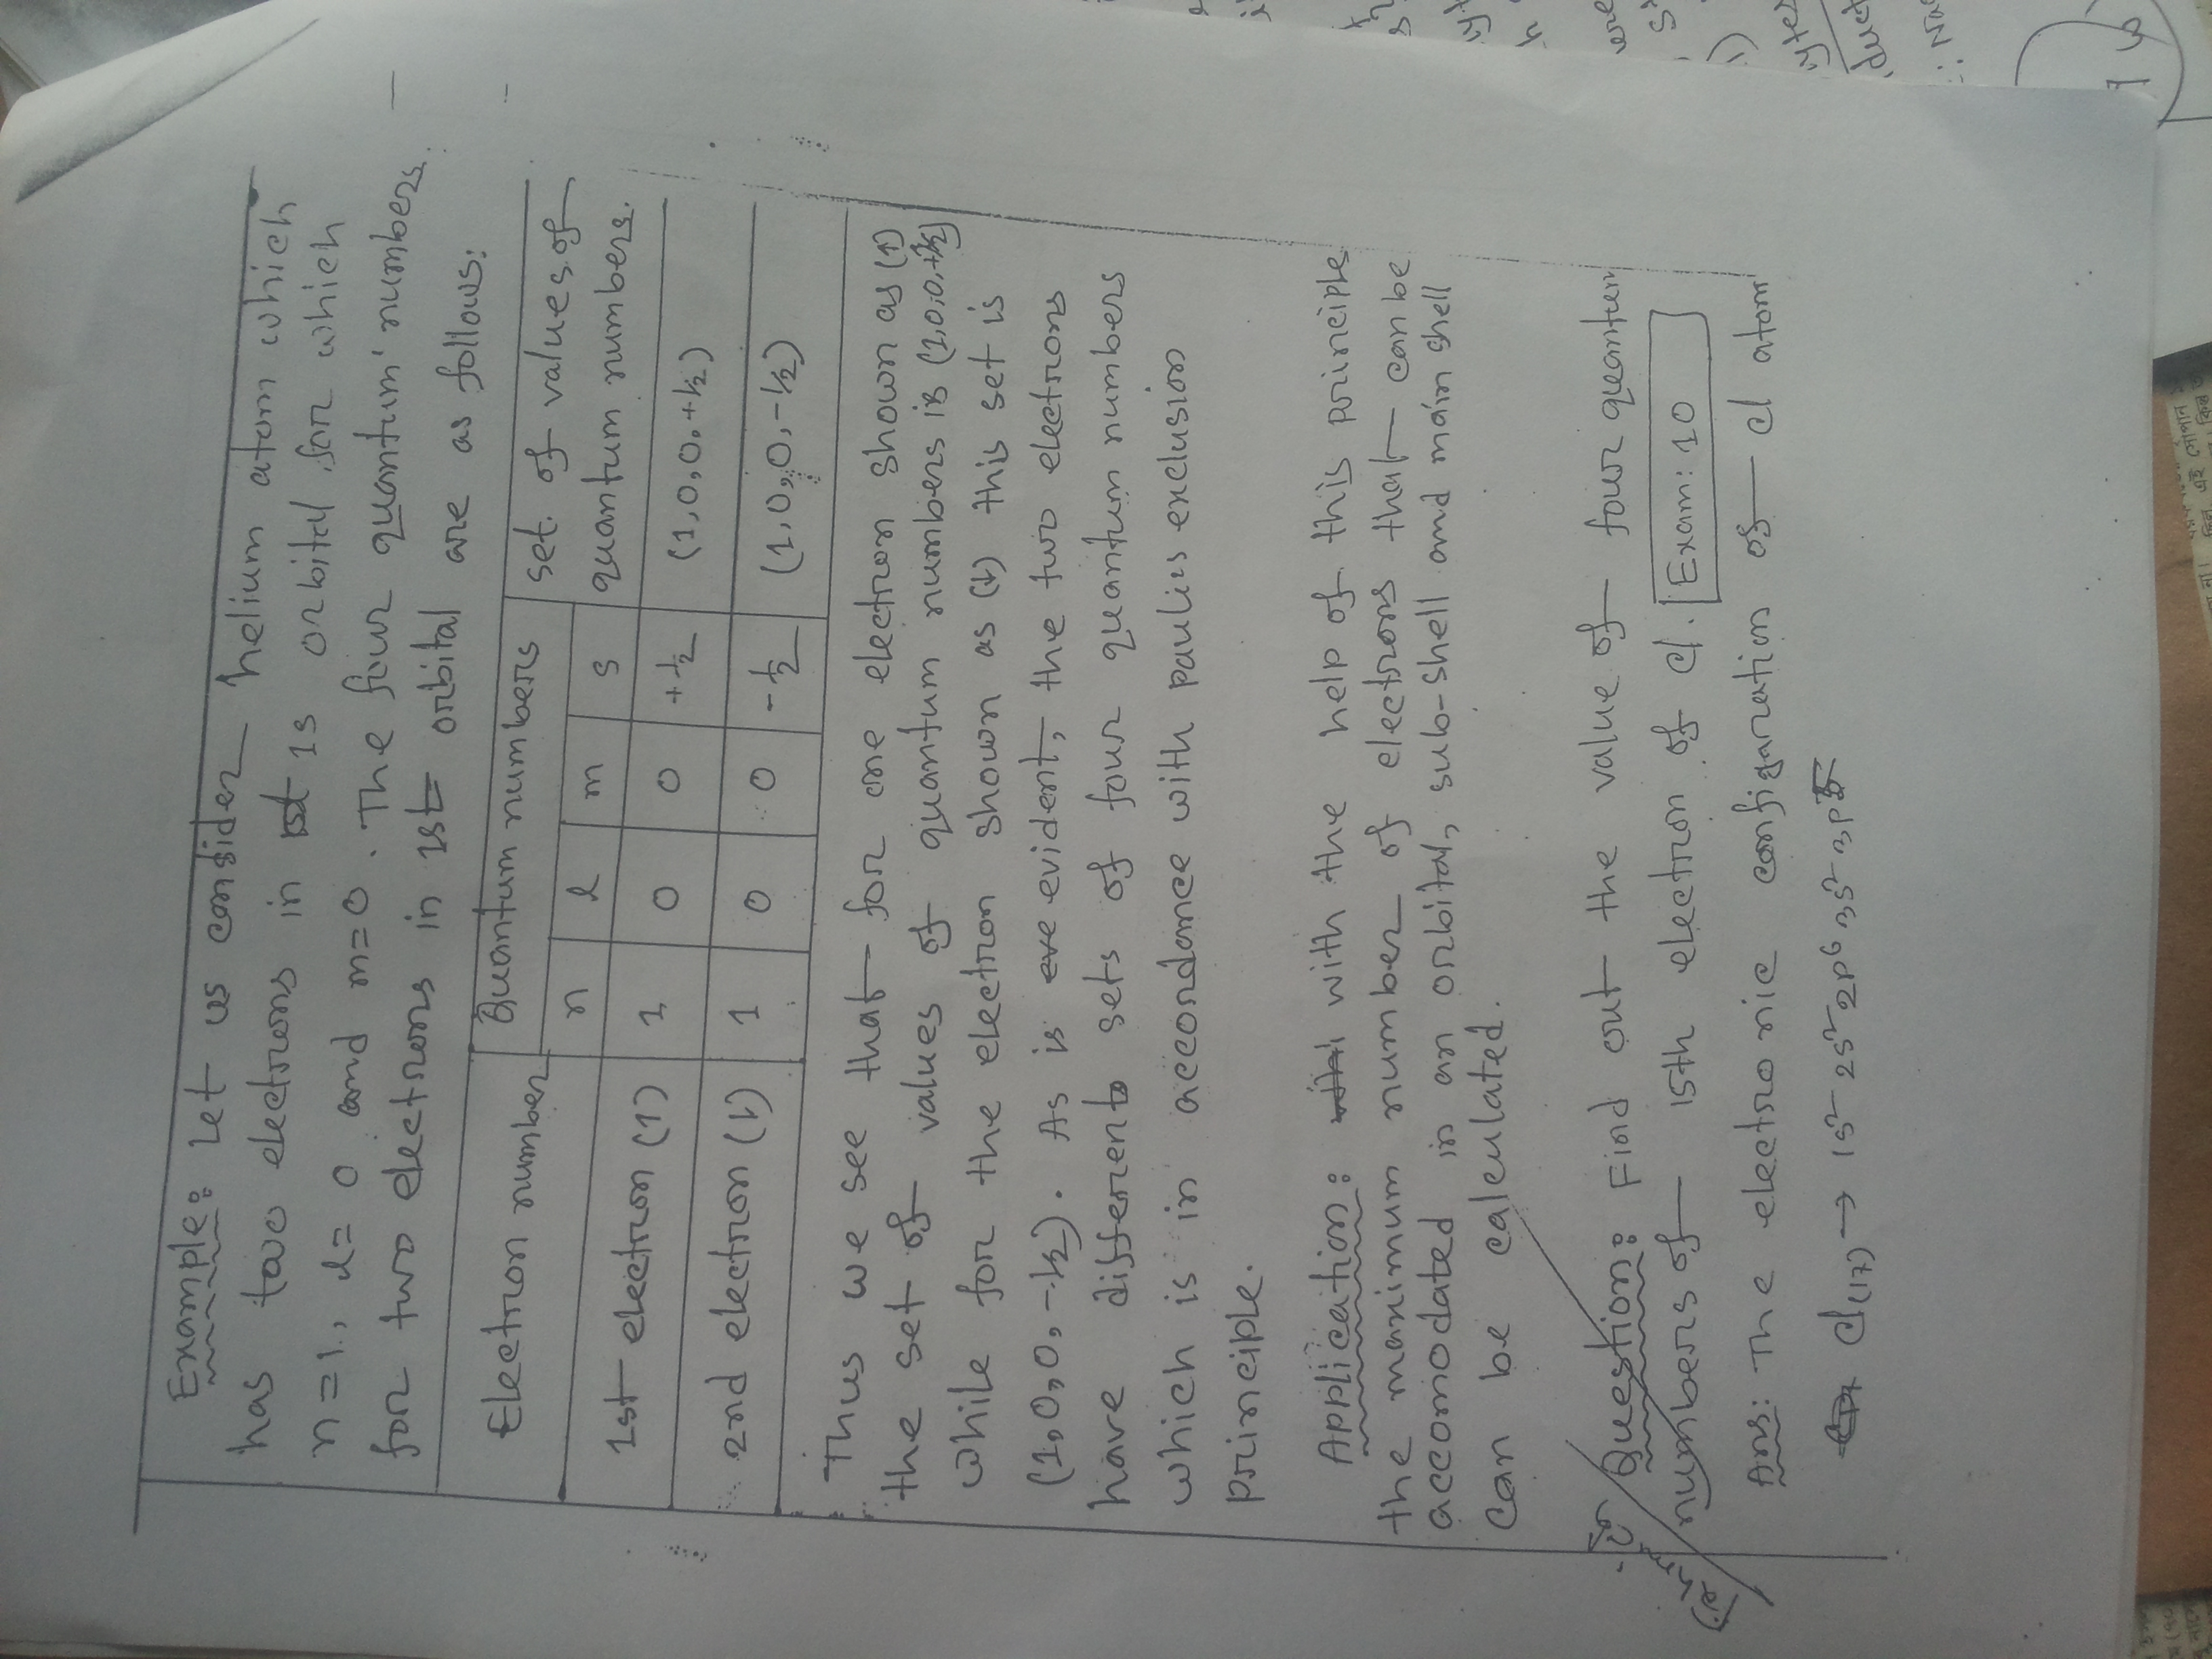 Example: Let us consider helium atom which
has two electrons in 1st 1s orbital for which
n=1, l= 0 and m=0. The four quantum numbers
for two electrons in 1st orbital are as follows:
Electron number Quantum numbers set of values of
n l m s quantum numbers.
1st electron (1) 1 0 0 +1/2 (1,0,0,+1/2)
2nd electron (↓) 1 0 0 -1/2 (1,0,0,-1/2)
Thus we see that for one electron shown as (1)
the set of values of quantum numbers is (1,0,0,+1/2)
while for the electron shown as (↓) this set is
(1,0,0,-1/2). As is eve evident, the two electrons
have different sets of four quantum numbers
which is in accordance with paulies exclusion
principle.
Application: with the help of this principle
the maximum number of electrons that can be
accomodated in an orbital, sub-shell and main shell
can be calculated.
Question: Find out the value of four quantum
numbers of 15th electron of cl. Exam: 10
Ans: The electronic configaration of cl atom
cl(17) → 1s² 2s² 2p⁶ 3s² 3p⁵
duct